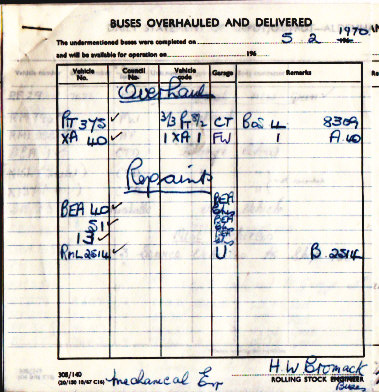 BUSES OVERHAULED AND DELIVERED
The undermentioned buses were completed on 5 2 1970 196
and will be available for operation on 196
Vehicle No. Council No. Vehicle code Garage Remarks
Overhaul
RT 3775 ✓ CT 8309
XA 40 ✓ 1 XA 1 FW 1 A 40
Repaints
BEA 40 ✓ BEA
51 ✓ BEA
13 ✓ BEA
RML 2514 ✓ U B 2514
308/140
(20/150 10/67 C16) Mechanical Eng H.W Bromack
ROLLING STOCK ENGINEER
Buses